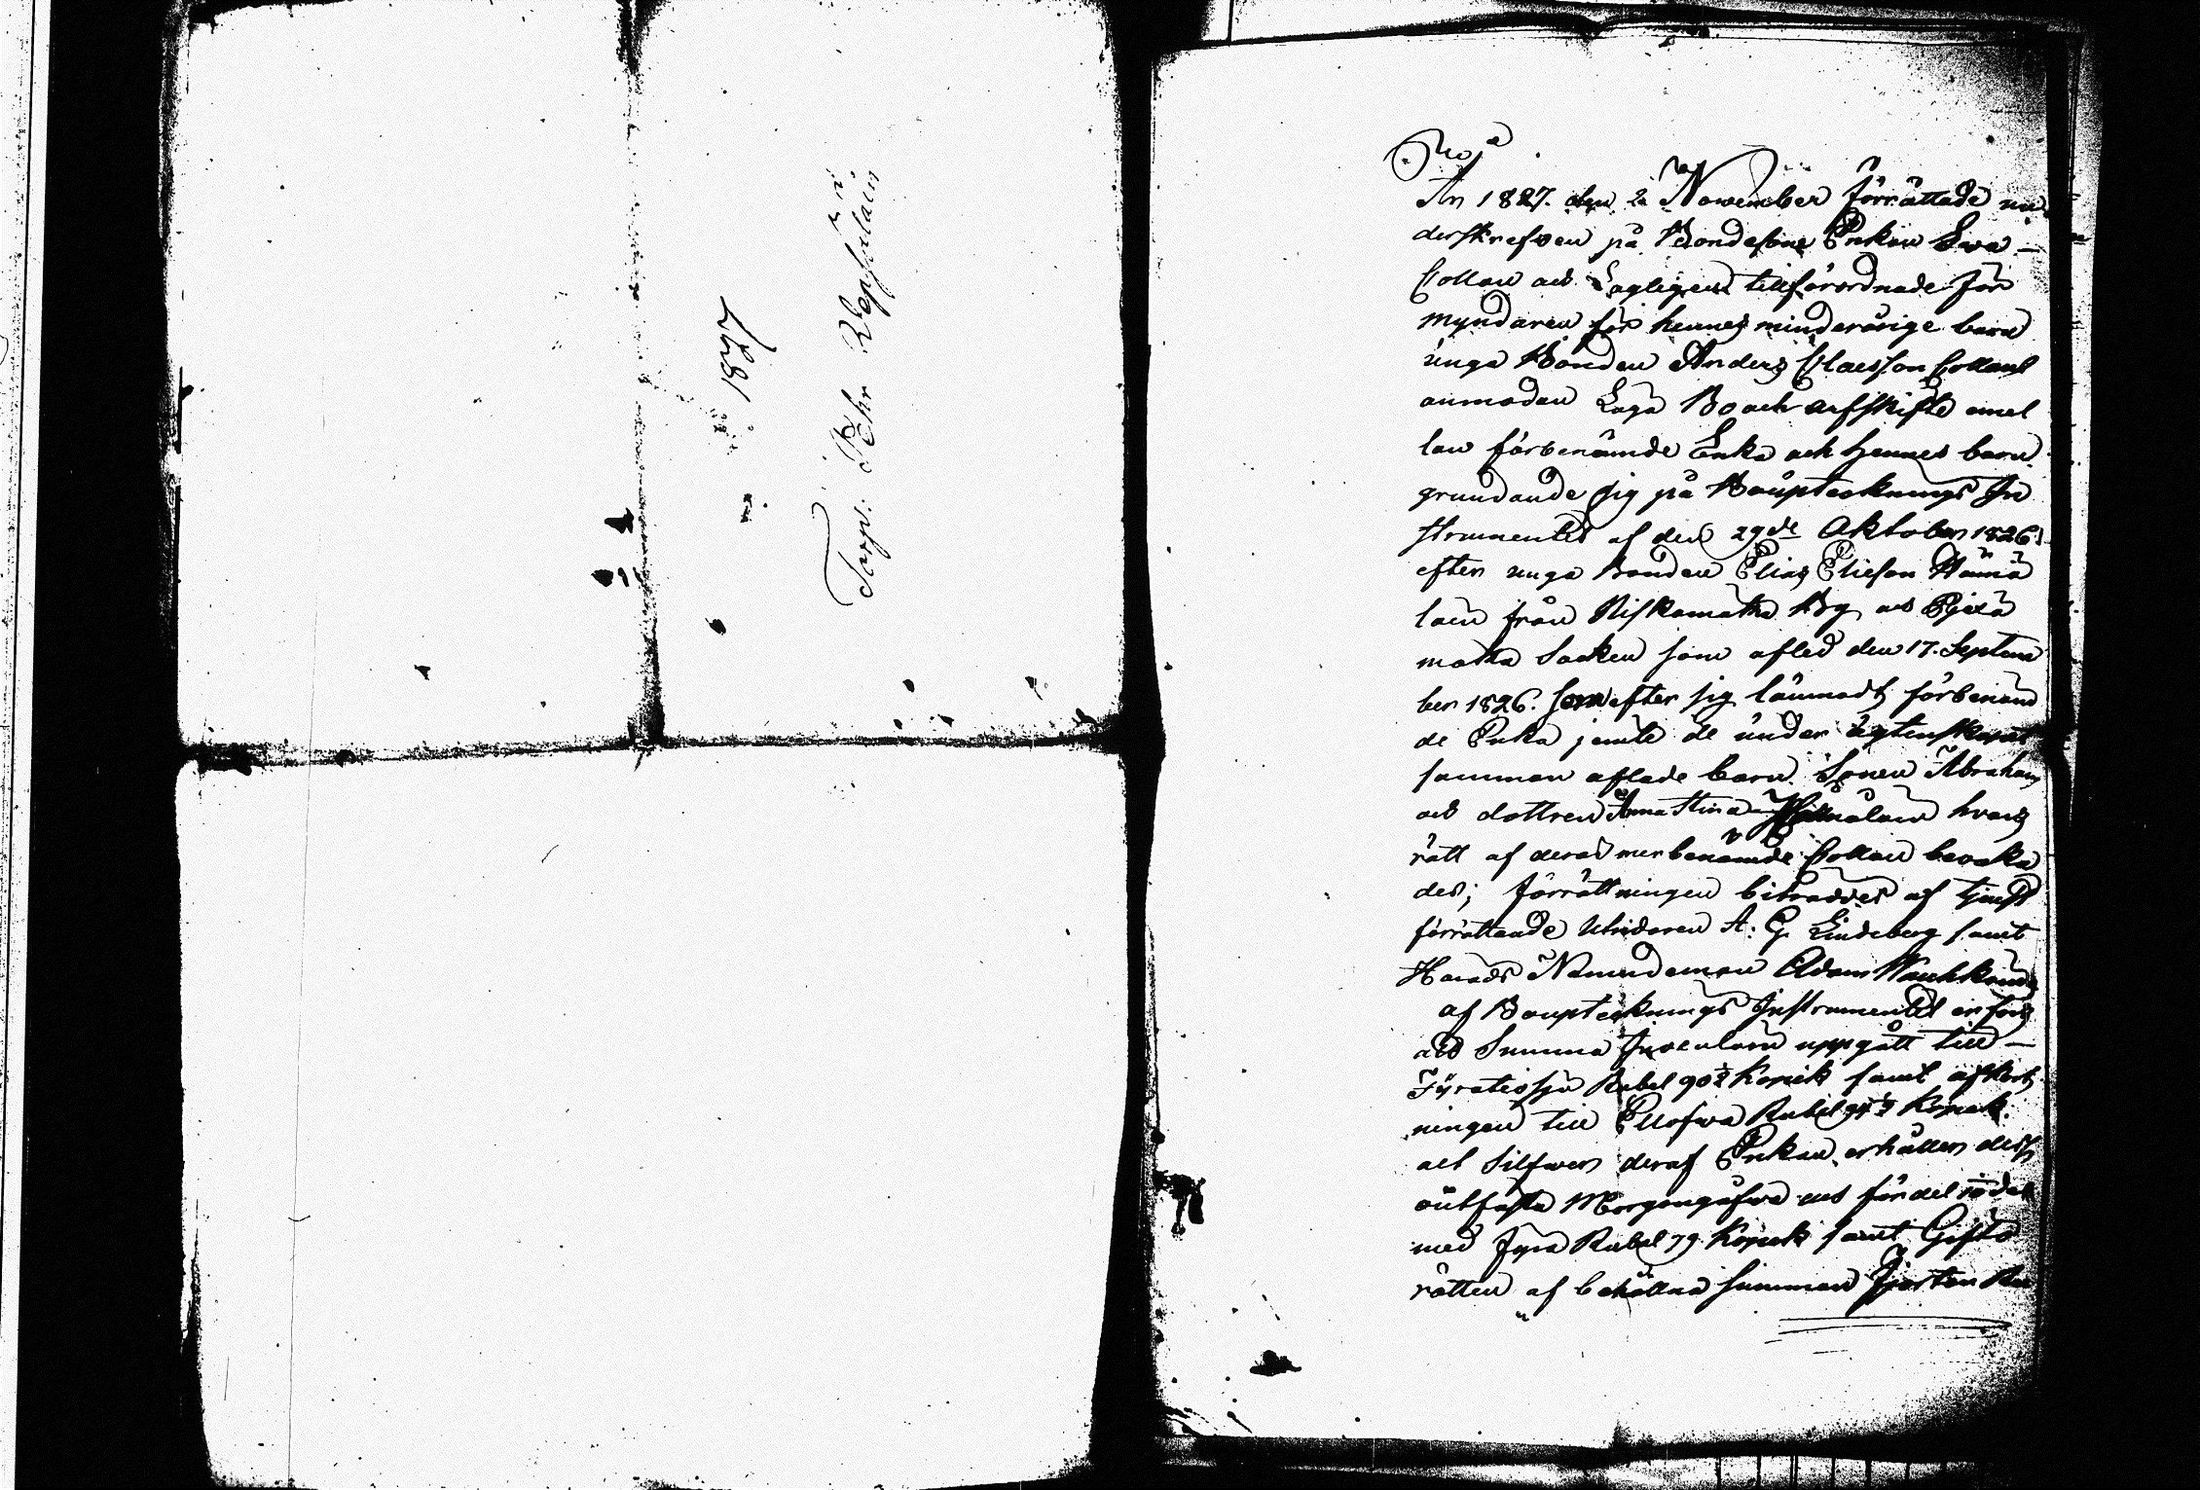 1827
Torp. Pehr Repsulain
Kopia
År 1827. den 2 November förrättade un
derskrefven på Bondesone Enkan Ewa
Collan ock Lagligen tillförordnade För
myndaren för hennes minderårige barn
unga Bonden Anders Claesson Collans
anmodan Laga Bo ock arfskifte emel
lan förbenämde Enka ock hennes barn
grundande sig på Boupteknings In
strumentet af den 29de Oktober 1826
efter unga Bonden Elias Elieson Hämä
lain från Niskamatka By ock Pyexä
matka Socken som afled den 17. Septem
ber 1826. som efter sig lämnadt förbenäm
de Enka jemte de under ägtenskapet
samman aflade barn. Sonen Abraham
ock dottren Anna Stina Hämälain hvars
rätt af deras merbenämde Collan bevaka
des; förrättningen biträddes af tjenst
förrättande Uhrdaren A: G Lindeberg samt
Harads Nämndeman Adam
af Boupteknings Instrumentet erfors
att Summa Inventarii uppgått till
Fyratiosju Rubel 90½ Kopek samt afkort
ningen till Ellofva Rubel 94½ Kopek.
alt Silfwer deraf Enkan erhåller dess
outfästa Morgongåfva ock fördel
med fyra Rubel 79 Kopek samt Gifto
rätten af behållna summan Fjorton Ru